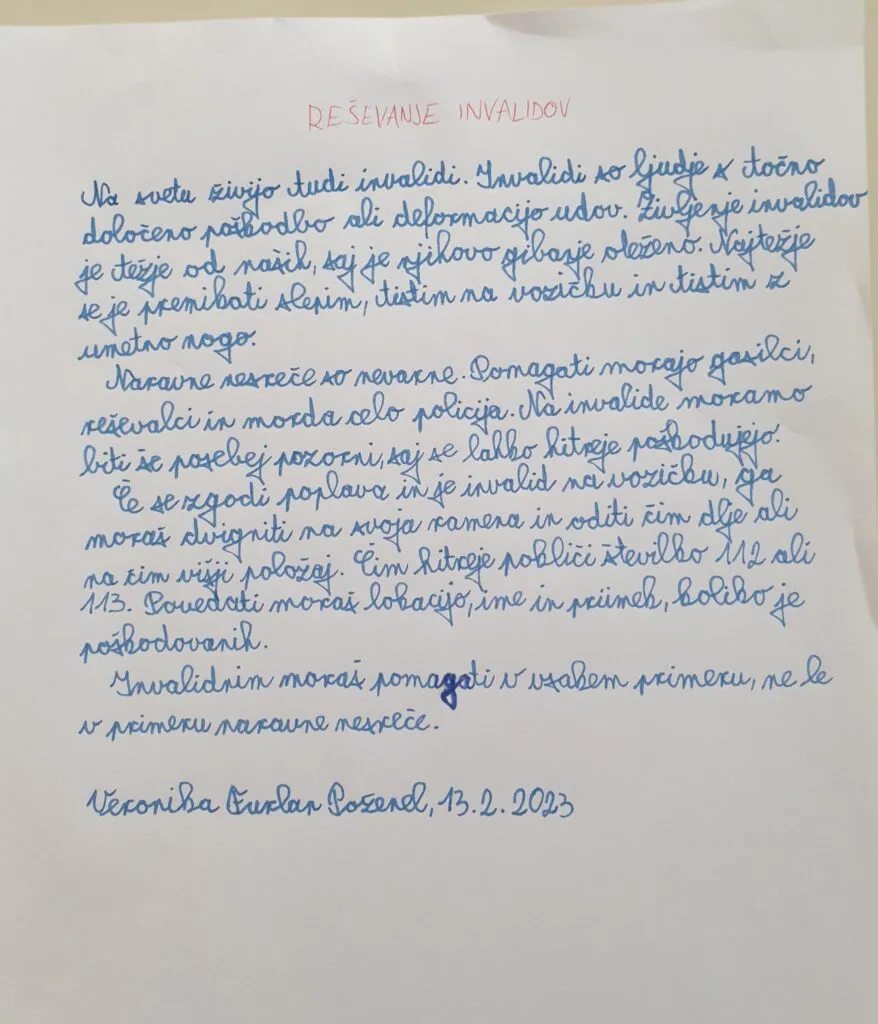 REŠEVANJE INVALIDOV
Na svetu živijo tudi invalidi. Invalidi so ljudje s točno
določeno poškodbo ali deformacijo udov. Življenje invalidov
je težje od naših, saj je njihovo gibanje oteženo. Najtežje
se je premikati slepim, tistim na vozičku in tistim z
umetno nogo.
Naravne nesreče so nevarne. Pomagati morajo gasilci,
reševalci in morda celo policija. Na invalide moramo
biti še posebej pozorni, saj se lahko hitreje poškodujejo.
Če se zgodi poplava in je invalid na vozičku, ga
moraš dvigniti na svoja ramena in oditi čim dlje ali
na čim višji položaj. Čim hitreje pokliči številko 112 ali
113. Povedati moraš lokacijo, ime in priimek, koliko je
poškodovanih.
Invalidnim moraš pomagati v vsakem primeru, ne le
v primeru naravne nesreče.
Veronika Furlan Poženel, 13.2.2023